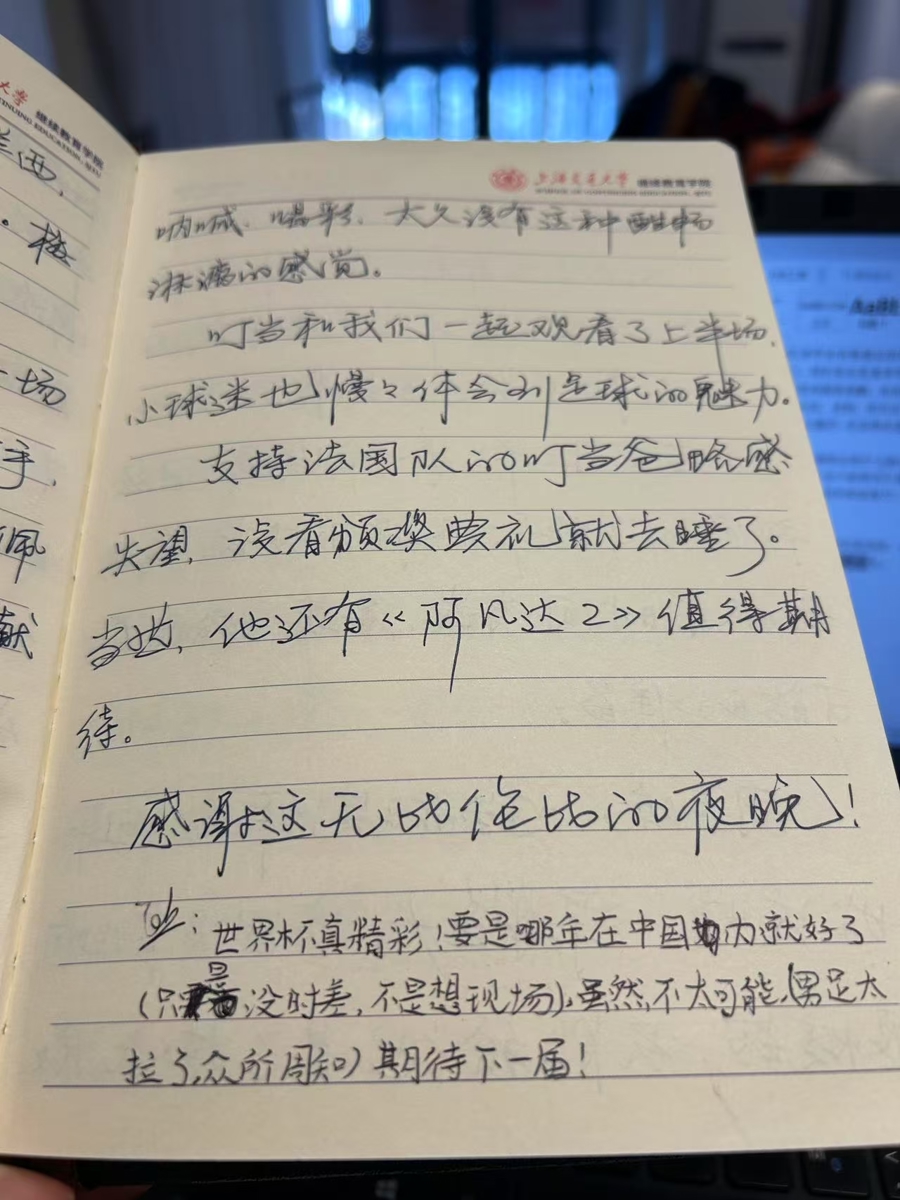 大学 继续教育学院
兰西,
。格
场
手,
佩
献
上海交通大学 继续教育学院
呐喊、喝彩,大久没有这种酣畅
淋漓的感觉。
叮当和我们一起观看了上半场,
小球迷也慢々体会到足球的魅力。
支持法国队的叮当爸略感
失望,没看颁奖典礼就去睡了。
当然,他还有《阿凡达2》值得期
待。
感谢这无与伦比的夜晚!
世界杯真精彩!要是哪年在中国内就好了
(只是没时差,不是想现场),虽然不太可能,(男足太
拉了,众所周知)期待下一届!
AaBb